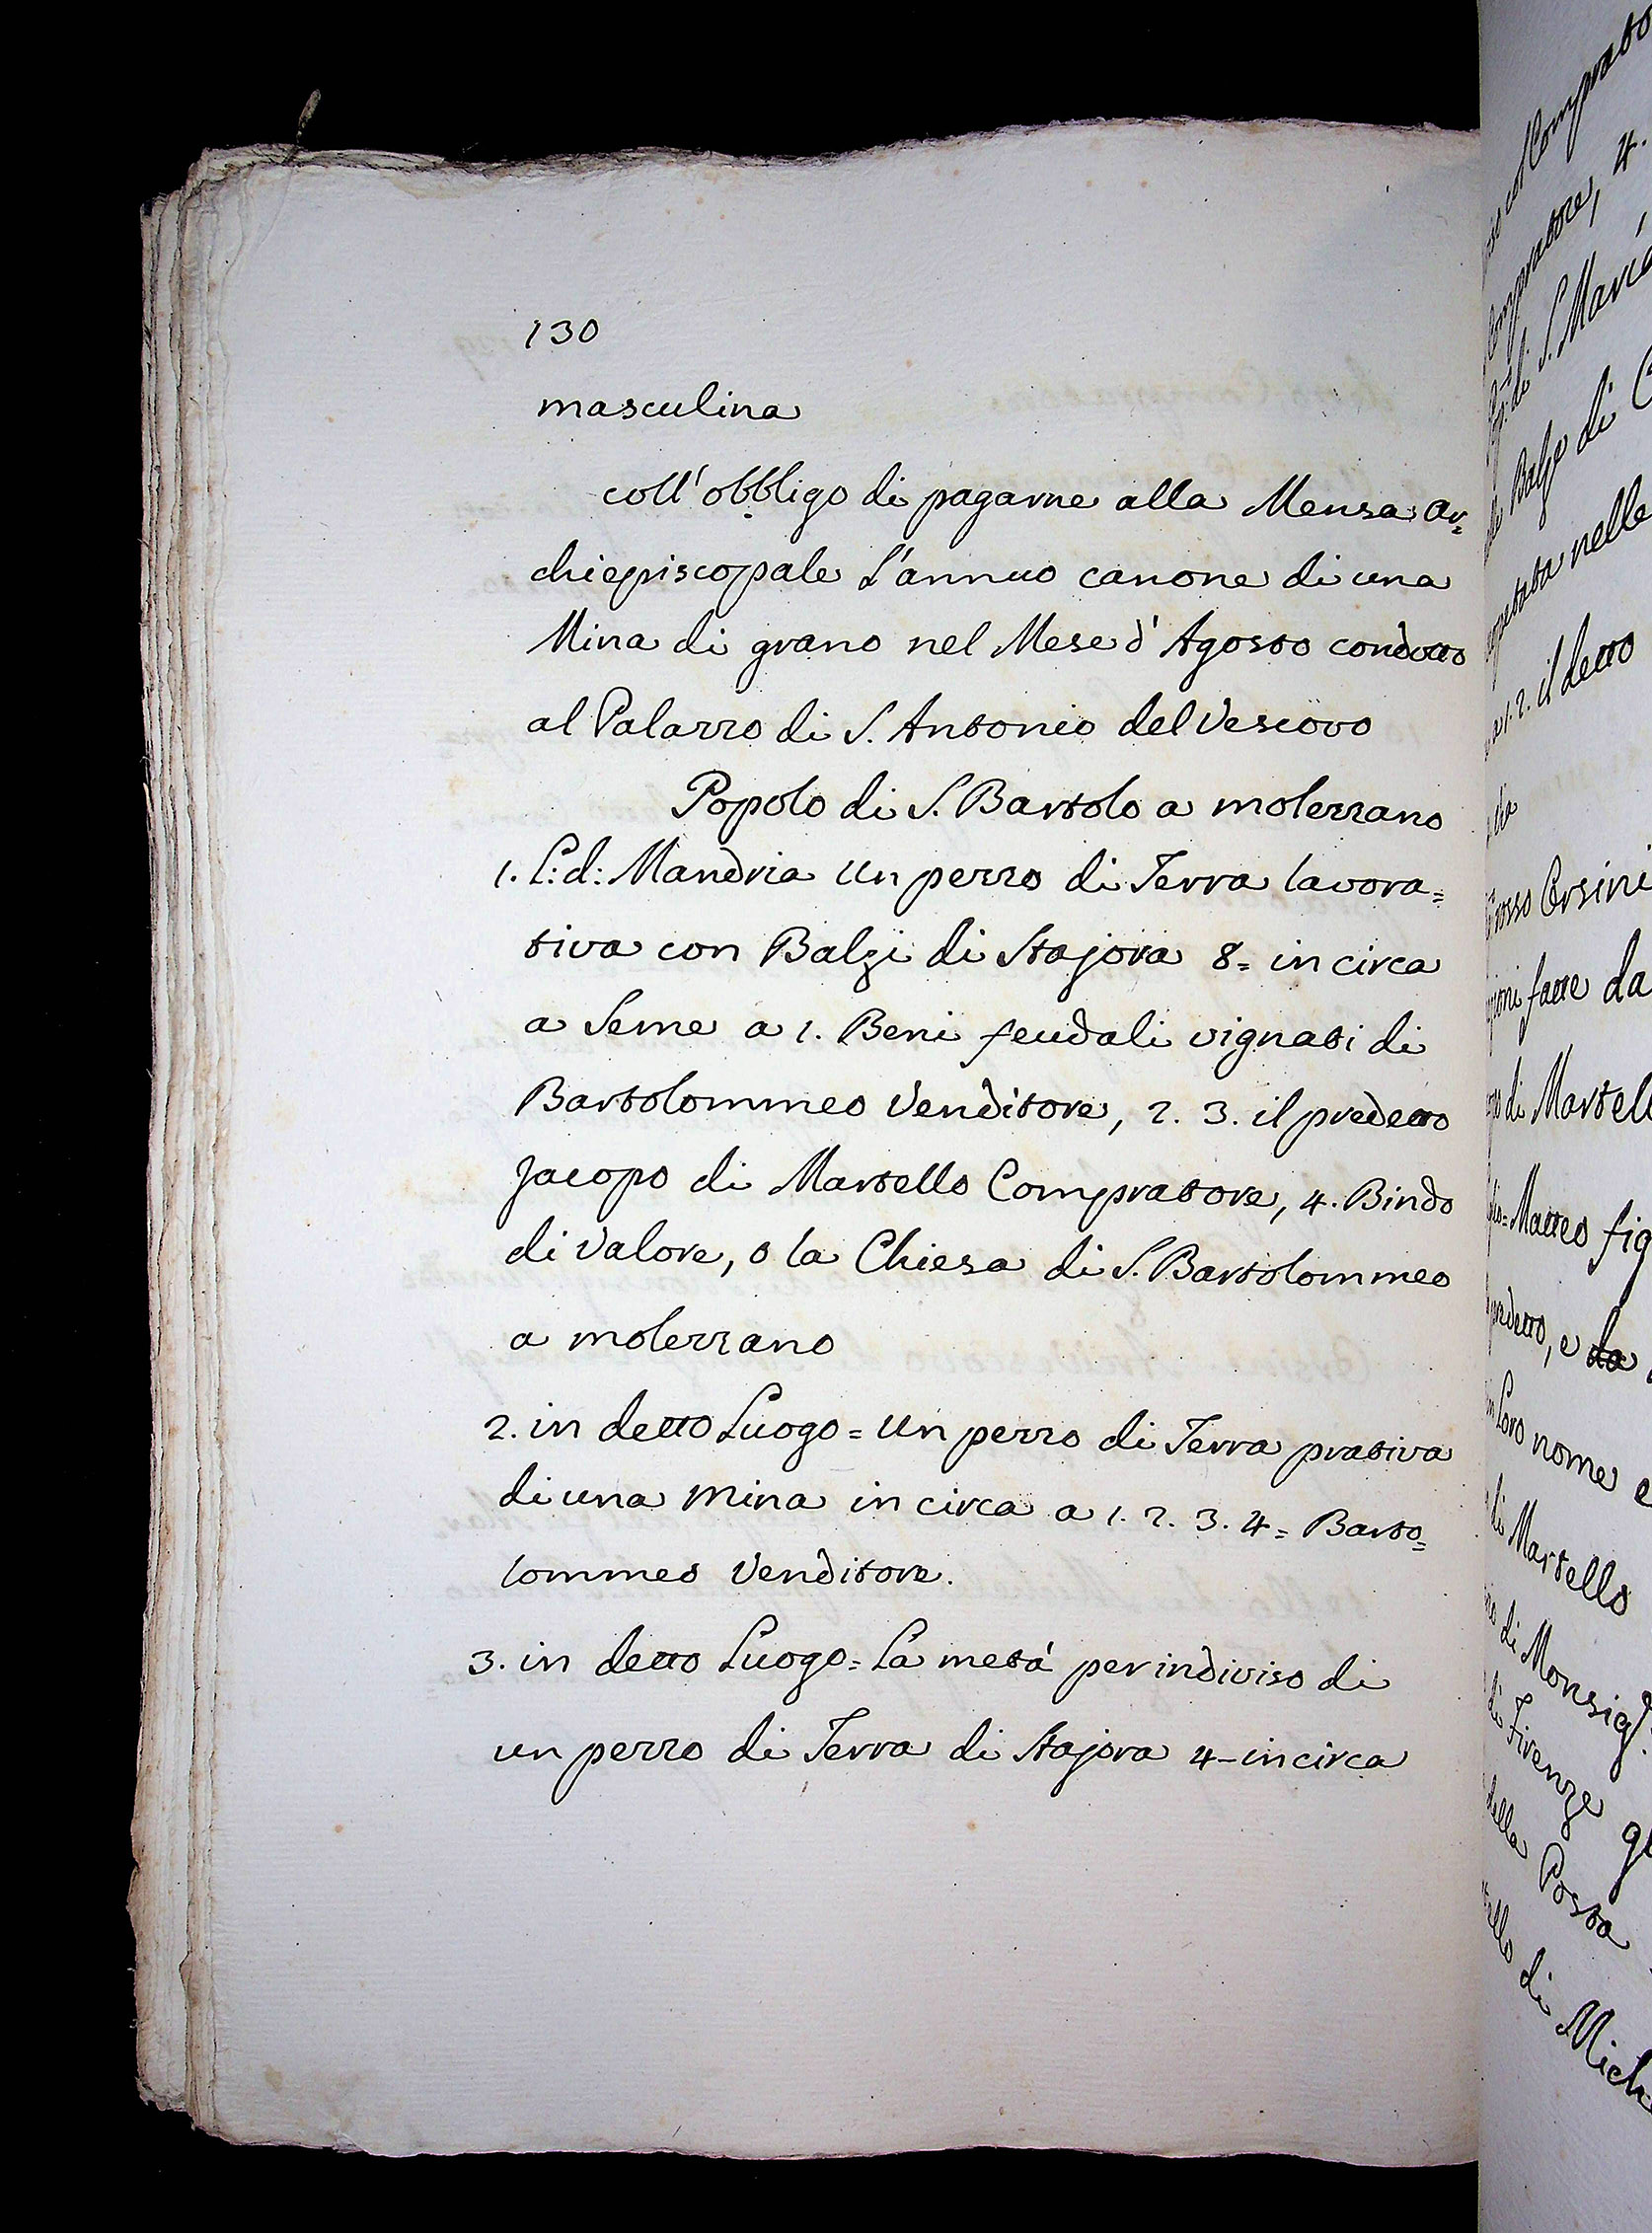 130
masculina
coll'obbligo di pagarne alla Mensa Ar=
chiepiscopale L'annuo canone di una
Mina di grano nel Mese d'Agosto condotto
al Palazzo di S. Antonio del Vescovo
Popolo di S. Bartolo a molezzano
1. L:d: Mandria Un pezzo di Terra lavora=
tiva con Balzi di Stajora 8= in circa
a Seme a 1. Beni feudali vignati di
Bartolommeo Venditore, 2. 3. il predetto
Jacopo di Martello Compratore, 4. Bindo
di Valore, o la Chiesa di S. Bartolommeo
a molezzano
2. in detto Luogo = Un pezzo di Terra prativa
di una Mina in circa a 1. 2. 3. 4= Barto=
lommeo Venditore.
3. in detto Luogo = La metà per indiviso di
un pezzo di Terra di Stajora 4- in circa
Comprato
Compratore, 4.
di S. Maria
Balze di
nelle
1. 2. il detto
Orsini
fatte da
di Martell
Matteo fig
predetto, e da
Loro nome e
di Martello
di Monsig.
di Firenze
della Posta
di Mich